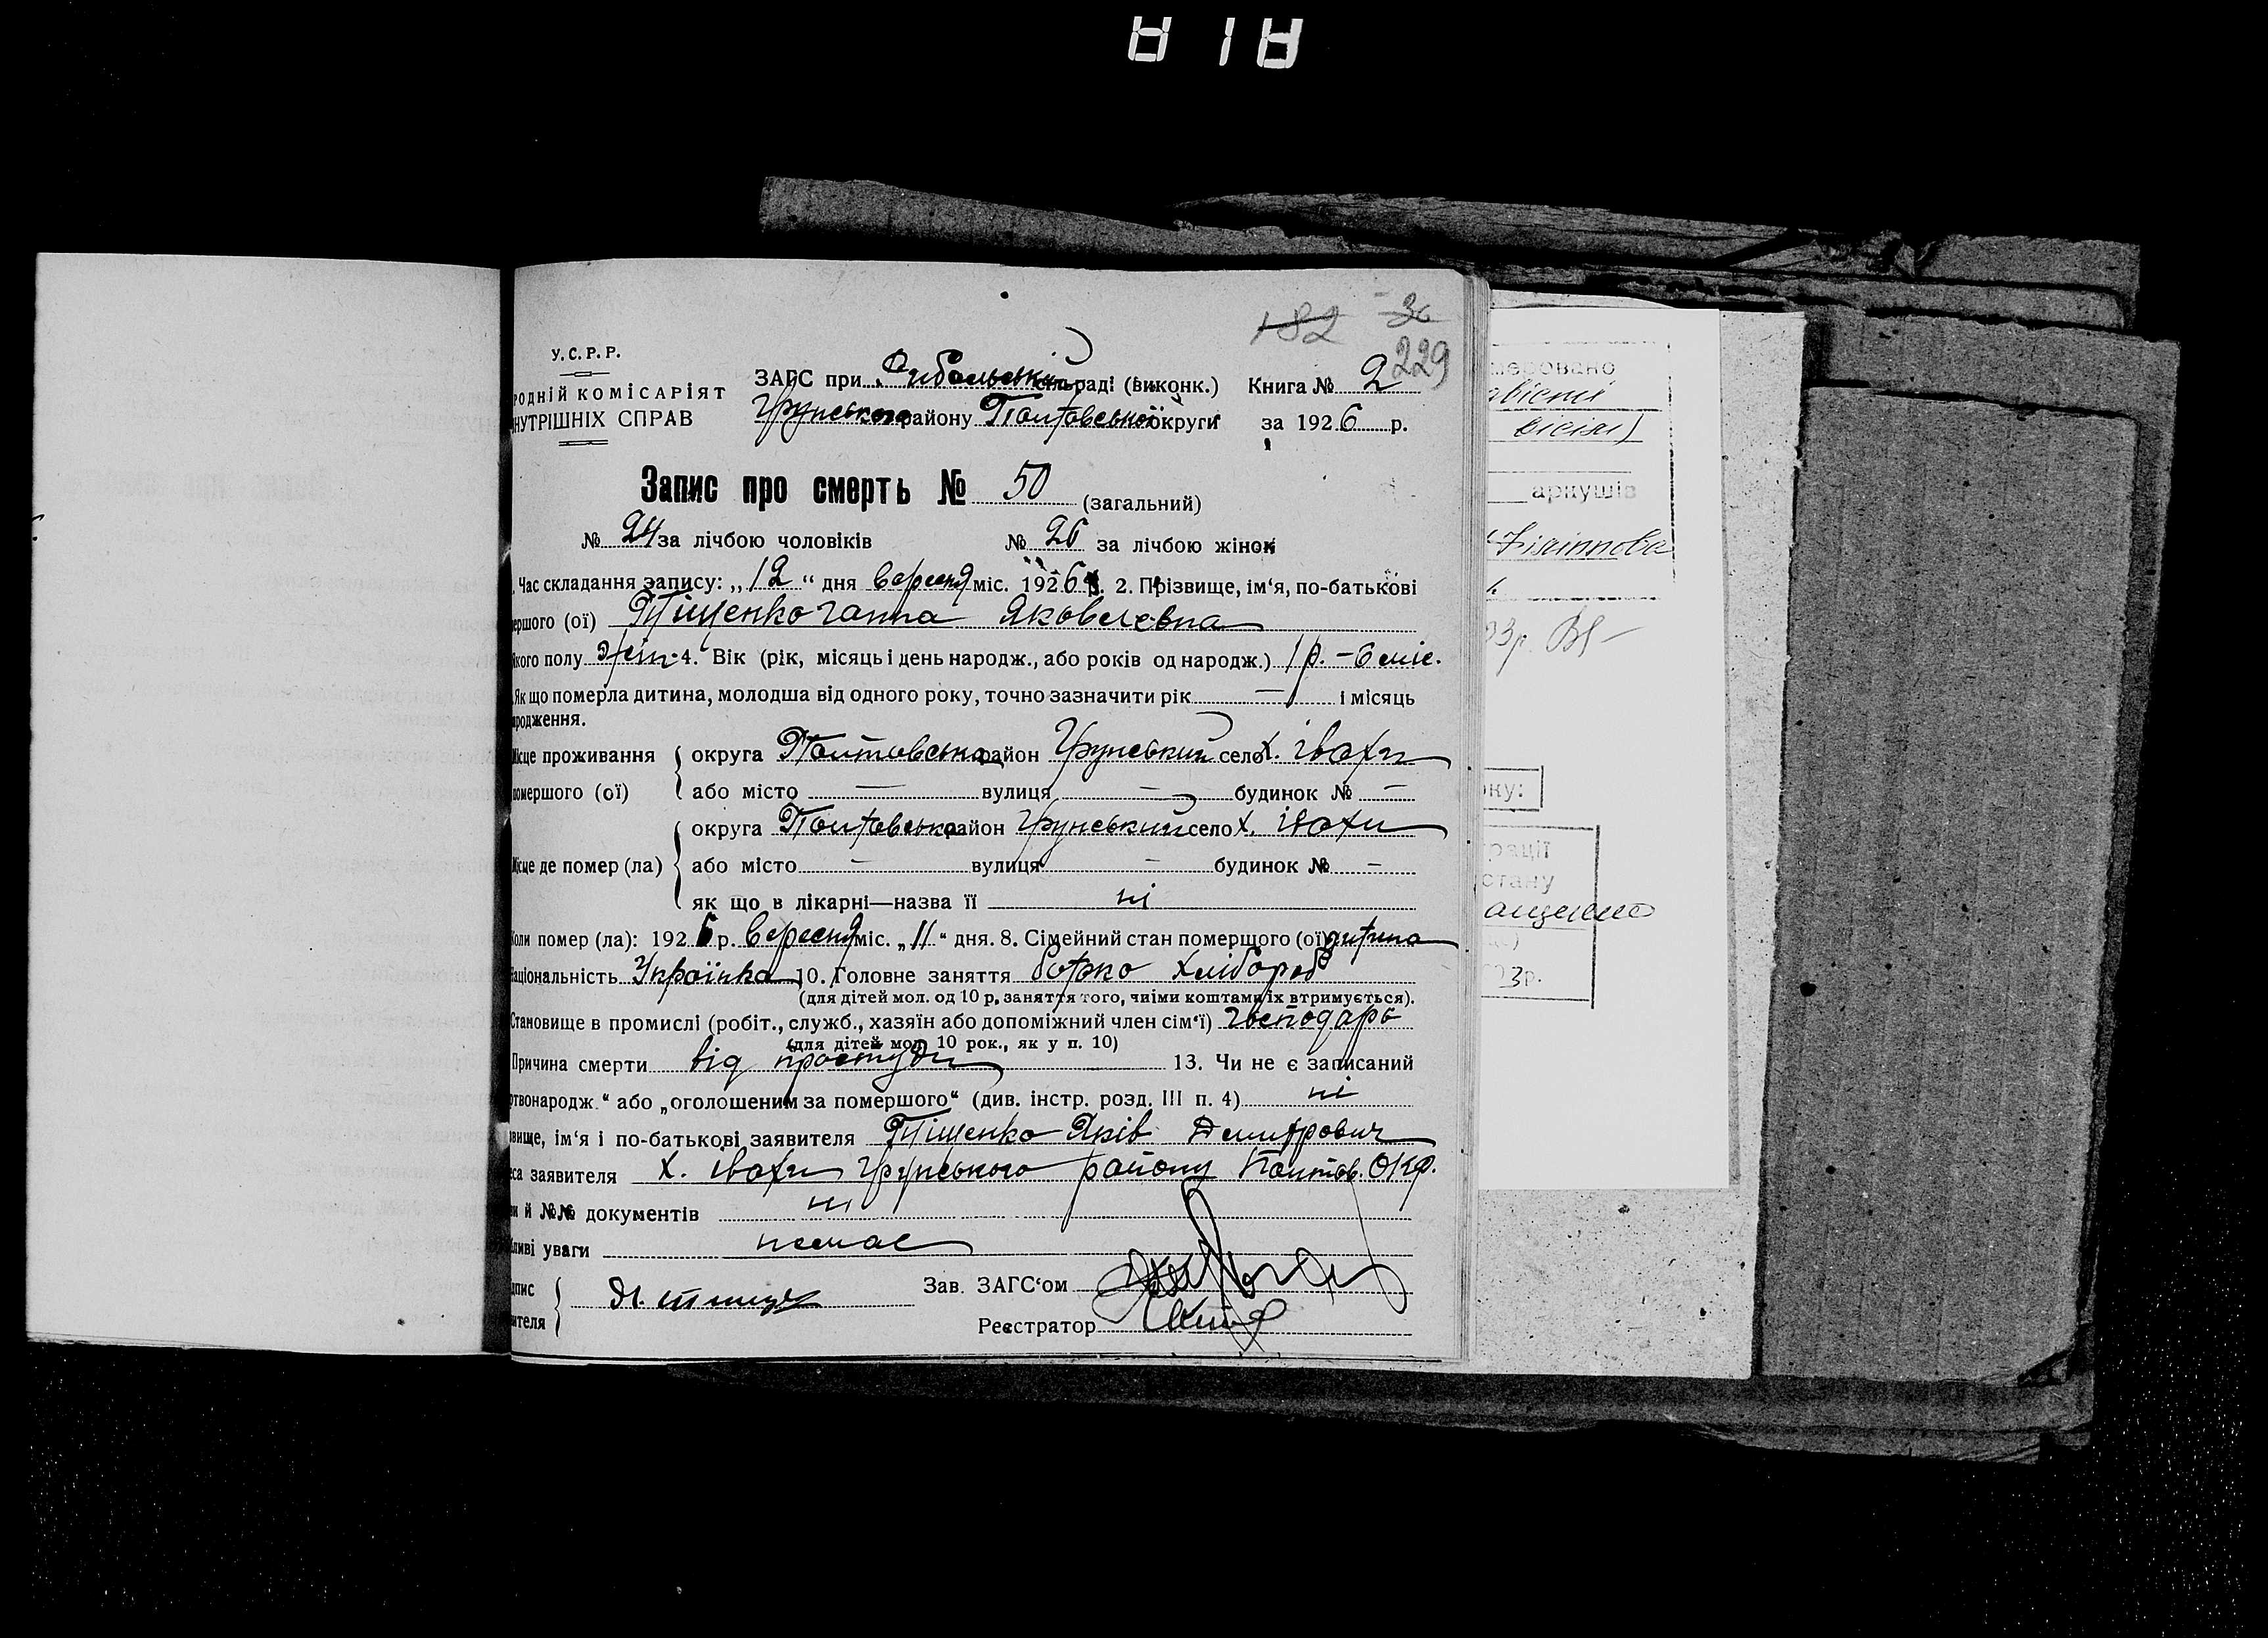 182 3с
229
У.С.Р.Р.
РОДНІЙ КОМІСАРІЯТ
НУТРІШНІХ СПРАВ
ЗАГС при Рибальській раді (виконк.) Книга № 2
Грунського району Полтовської округи за 1926 р.
Запис про смерть № 50 (загальний)
№ 24 за лічбою чоловіків № 26 за лічбою жінок
. Час складання запису: „12“ дня вересня міс. 1926 р. 2. Прізвище, ім'я, по-батькові
ершого (ої) Тіщенко Ганна Яковлевна
якого полу жін. 4. Вік (рік, місяць і день народж., або років од народж.) 1 р. – 6 міс.
Як що померла дитина, молодша від одного року, точно зазначити рік — і місяць
родження.
Місце проживання округа Полтовська район Грунський село х. івахи
помершого (ої) або місто — вулиця — будинок № —
округа Полтовська район Грунський село х. івахи
Місце де помер (ла) або місто — вулиця — будинок № —
як що в лікарні—назва її ні
Коли помер (ла): 1926 р. вересня міс. „11“ дня. 8. Сімейний стан помершого (ої) дитина
Національність Українка 10. Головне заняття батько хлібороб
(для дітей мол. од 10 р. заняття того, чиїми коштами їх втримується).
Становище в промислі (робіт., служб., хазяїн або допоміжний член сім'ї) господарь
(для дітей мол. 10 рок., як у п. 10)
Причина смерти від простуди 13. Чи не є записаний
ртвонародж.“ або „оголошеним за помершого“ (див. інстр. розд. III п. 4) ні
звище, ім'я і по-батькові заявителя Тіщенко Яків Демитрович
еса заявителя х. івахи Грунського району Полтов. Окр.
ви й №№ документів ні
бливі уваги немає
дпис
вителя
Зав. ЗАГС'ом
Реєстратор
меровано
вісті
вісім)
аркушів
Філіппова
03р.
оку:
рації
стану
ащенко
03р.